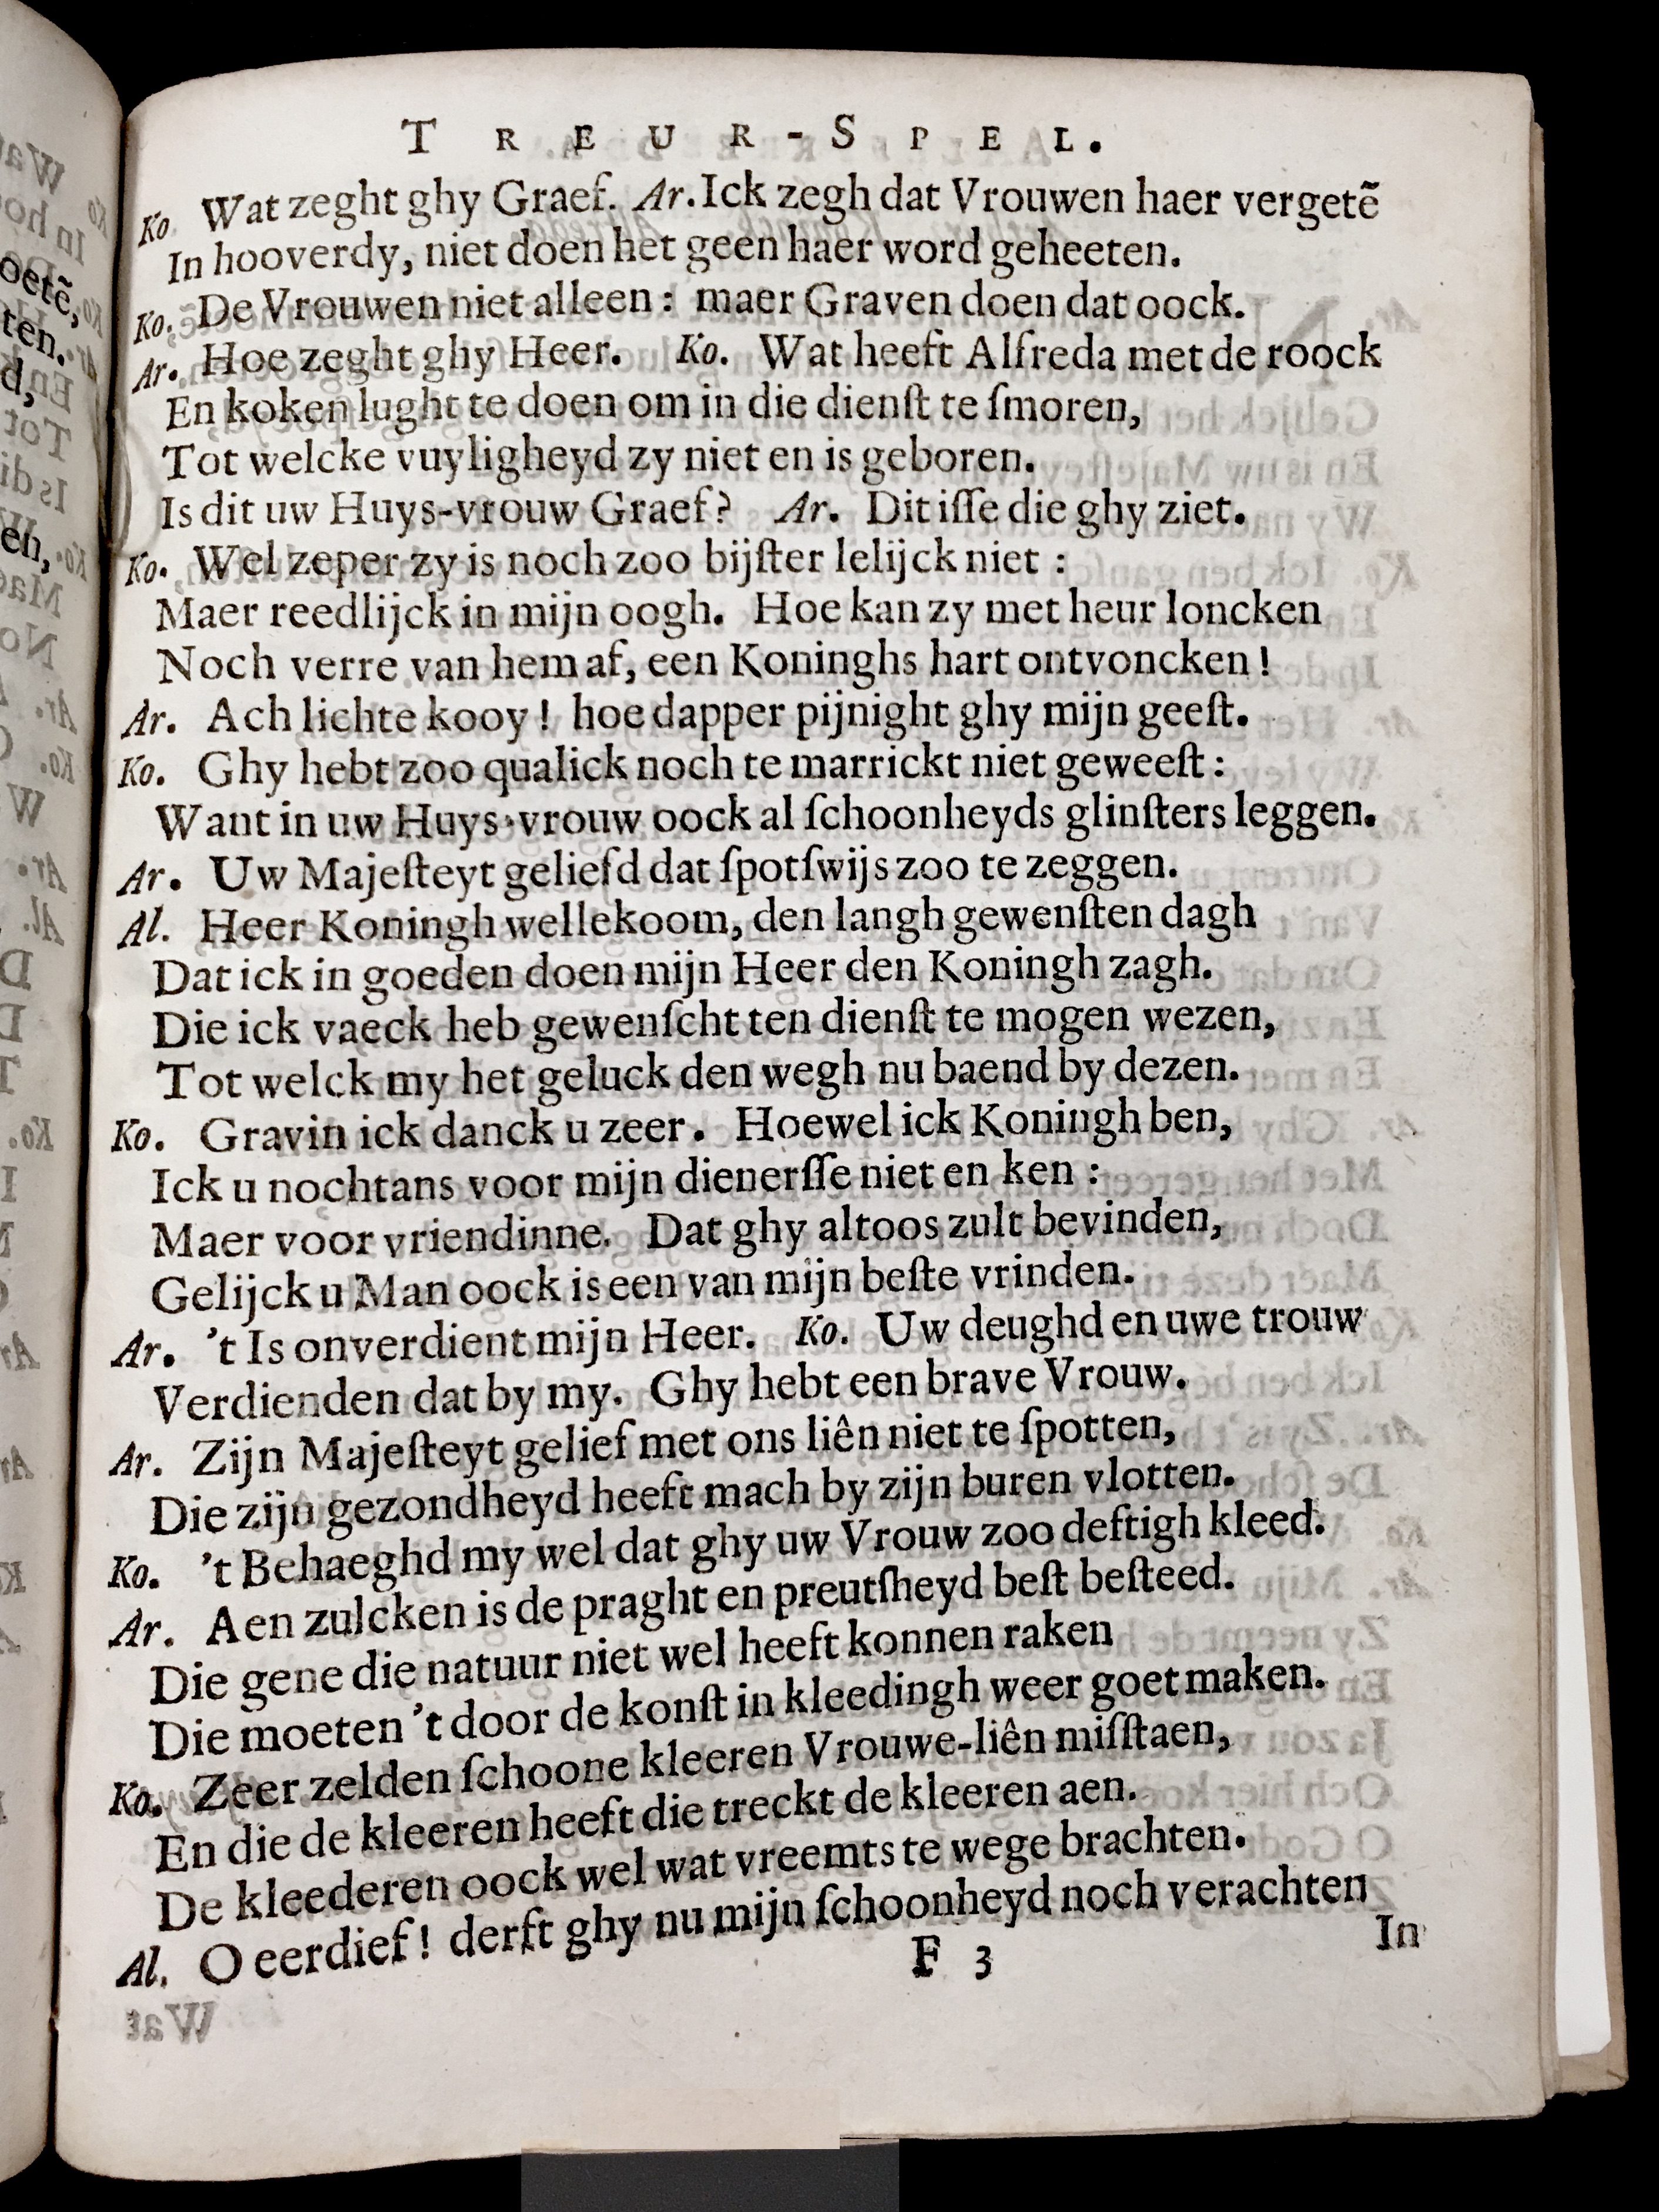 TREUR-SPEL.
Ko. Wat zeght ghy Graef. Ar. Ick zegh dat Vrouwen haer vergetẽ
In hooverdy, niet doen het geen haer word geheeten.
Ko. De Vrouwen niet alleen: maer Graven doen dat oock.
Ar. Hoe zeght ghy Heer. Ko. Wat heeft Alfreda met de roock
En koken lught te doen om in die dienſt te ſmoren,
Tot welcke vuyligheyd zy niet en is geboren.
Is dit uw Huys-vrouw Graef? Ar. Dit iſſe die ghy ziet.
Ko. Wel zeper zy is noch zoo bijſter lelijck niet:
Maer reedlijck in mijn oogh. Hoe kan zy met heur loncken
Noch verre van hem af, een Koninghs hart ontvoncken!
Ar. Ach lichte kooy! hoe dapper pijnight ghy mijn geeſt.
Ko. Ghy hebt zoo qualick noch te marrickt niet geweeſt:
Want in uw Huys-vrouw oock al ſchoonheyds glinſters leggen.
Ar. Uw Majeſteyt geliefd dat ſpotſwijs zoo te zeggen.
Al. Heer Koningh wellekoom, den langh gewenſten dagh
Dat ick in goeden doen mijn Heer den Koningh zagh.
Die ick vaeck heb gewenſcht ten dienſt te mogen wezen,
Tot welck my het geluck den wegh nu baend by dezen.
Ko. Gravin ick danck u zeer. Hoewel ick Koningh ben,
Ick u nochtans voor mijn dienerſſe niet en ken:
Maer voor vriendinne. Dat ghy altoos zult bevinden,
Gelijck u Man oock is een van mijn beſte vrinden.
Ar. 't Is onverdient mijn Heer. Ko. Uw deughd en uwe trouw
Verdienden dat by my. Ghy hebt een brave Vrouw.
Ar. Zijn Majeſteyt gelief met ons liên niet te ſpotten,
Die zijn gezondheyd heeft mach by zijn buren vlotten.
Ko. 't Behaeghd my wel dat ghy uw Vrouw zoo deftigh kleed.
Ar. Aen zulcken is de praght en preutſheyd beſt beſteed.
Die gene die natuur niet wel heeft konnen raken
Die moeten 't door de konſt in kleedingh weer goet maken.
Ko. Zeer zelden ſchoone kleeren Vrouwe-liên miſſtaen,
En die de kleeren heeft die treckt de kleeren aen.
De kleederen oock wel wat vreemts te wege brachten.
Al. O eerdief! derft ghy nu mijn ſchoonheyd noch verachten
F 3
In